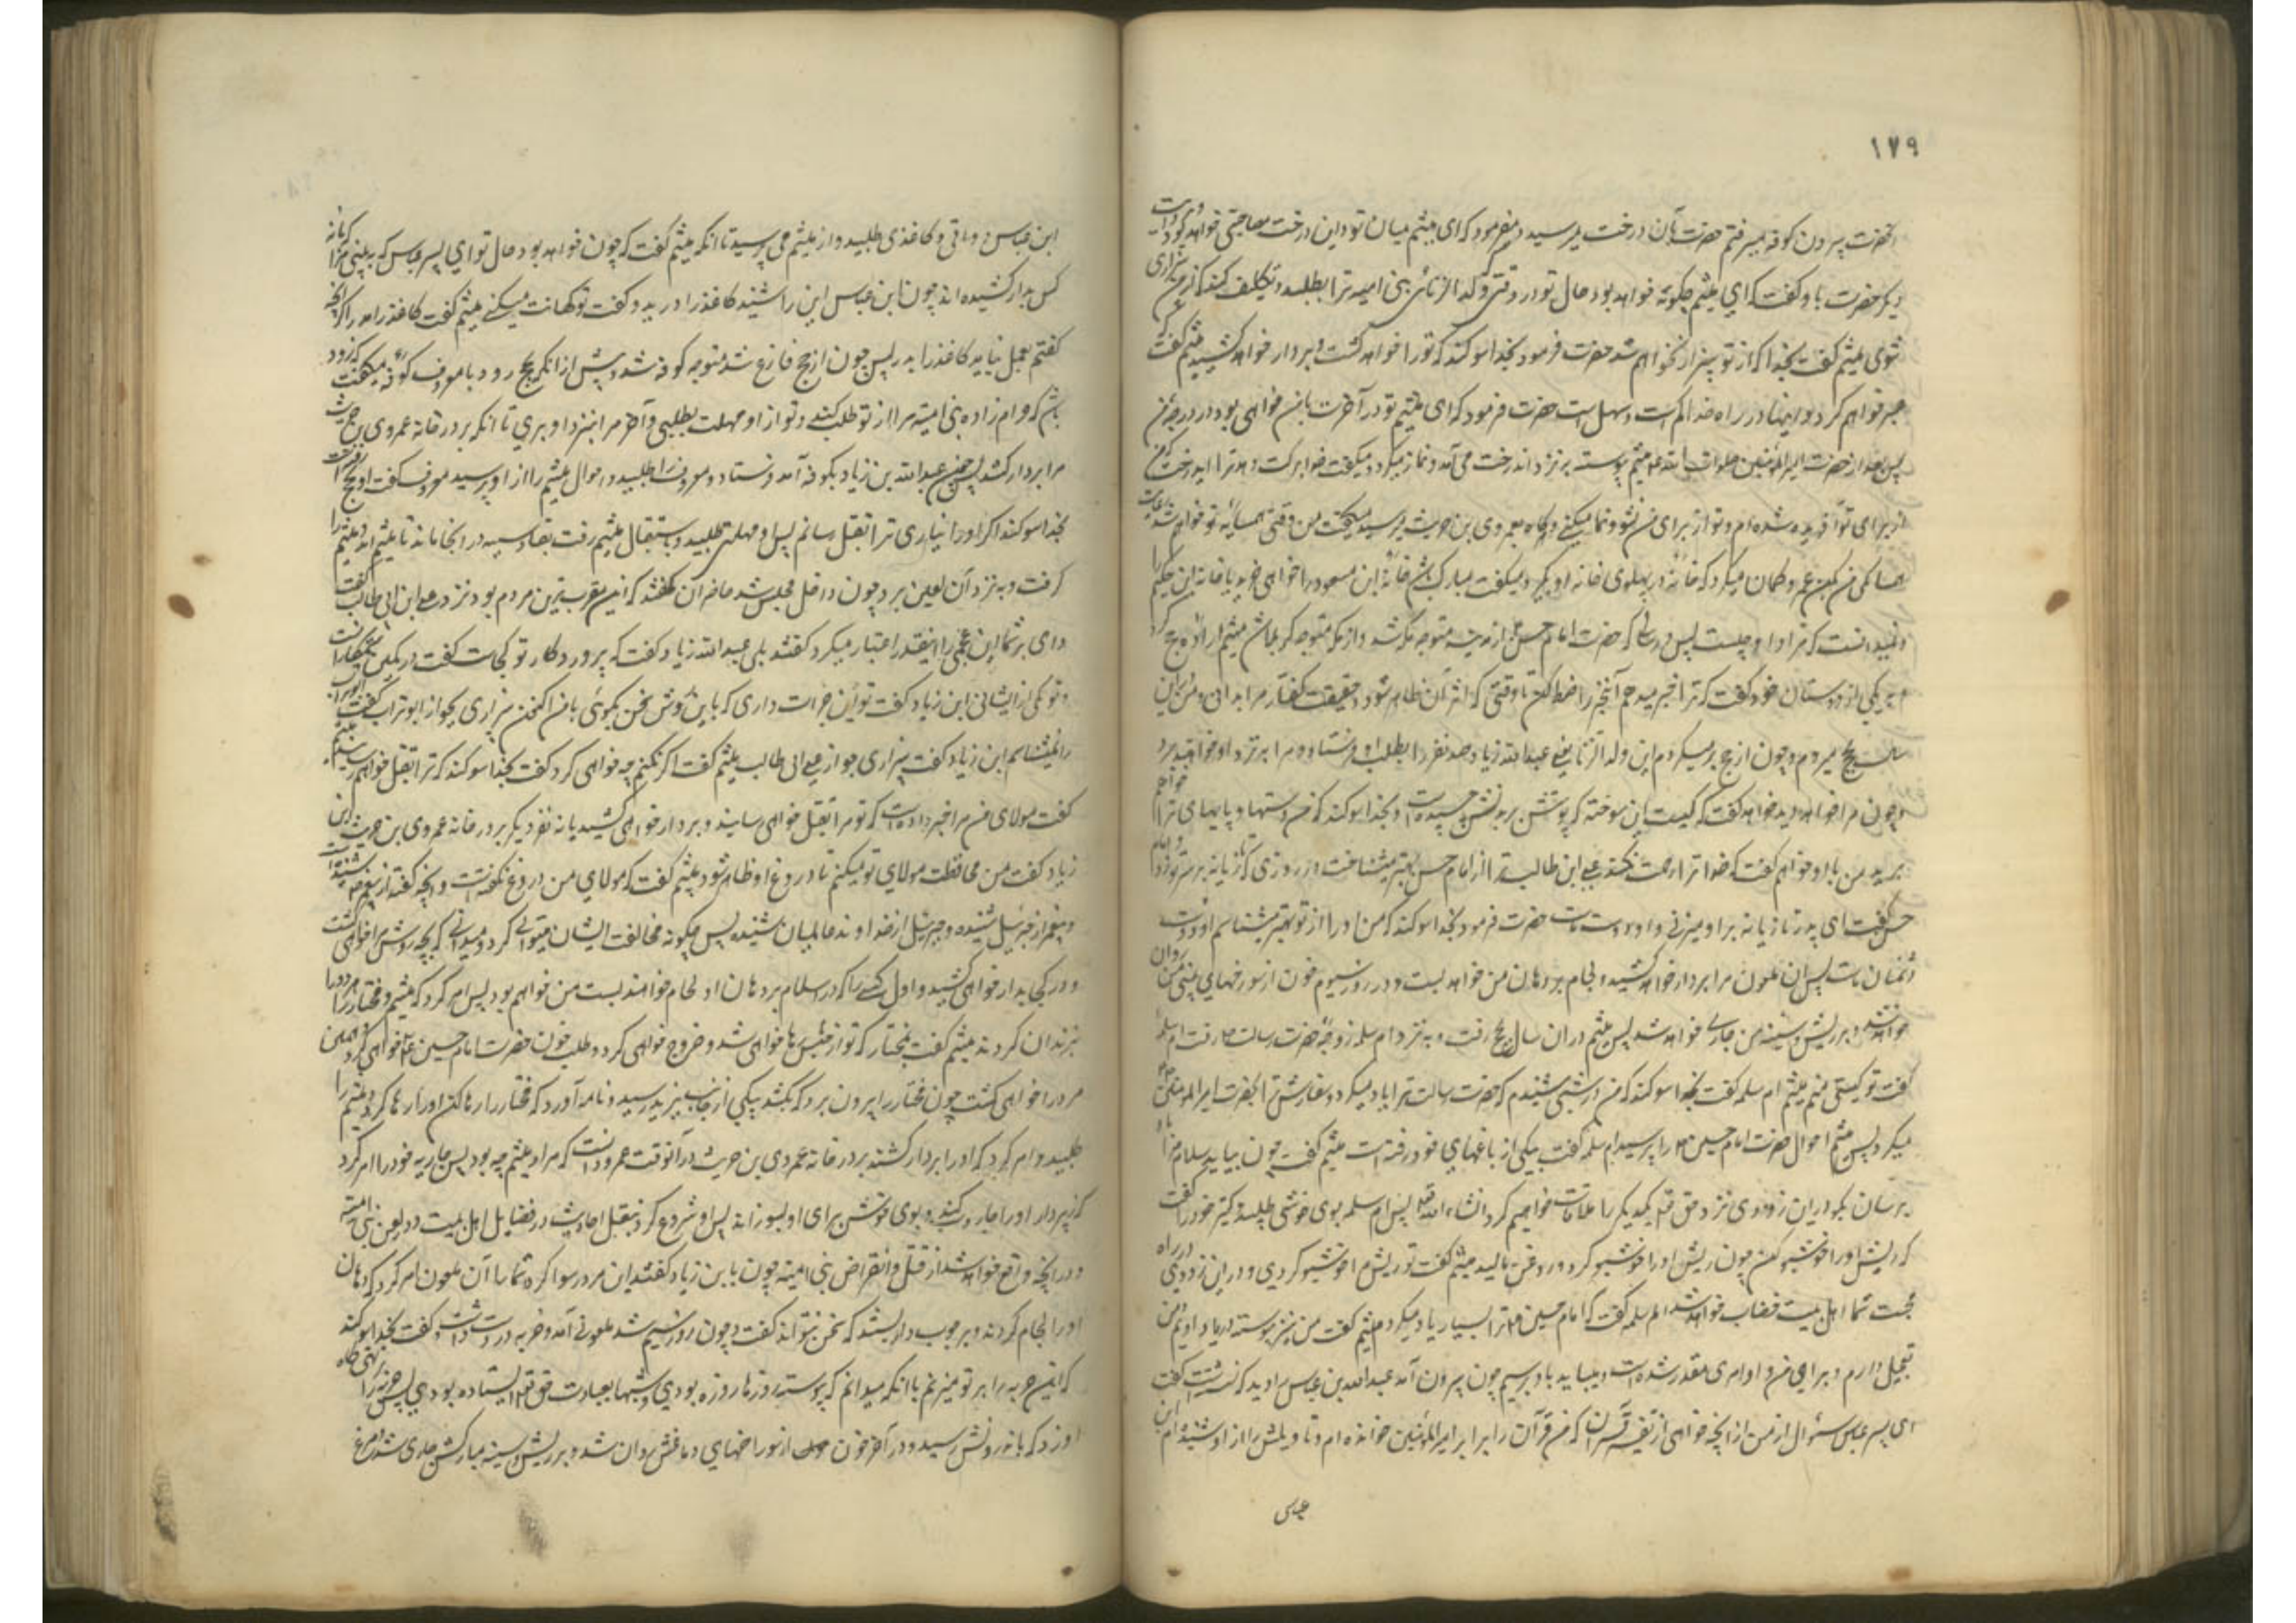 ۱۷۹
حضرت بیرون کوفه میرفتم حضرت بآن درخت میرسید و میفرمود که ای میثم میان تو و این درخت مصاحبتی خواهد بود و
دیگر حضرت باو گفت که ای میثم چگونه خواهد بود حال تو در وقتی که ولد الزنای بنی امیه ترا بطلبد و تکلیف کند که از من بیزاری
شوی میثم گفت بخدا که از تو بیزار نخواهم شد حضرت فرمود بخدا سوکند که تو را خواهد کشت و بر دار خواهد کشید میثم گفت
صبر خواهم کرد و اینها در راه خدا کم است و سهل است حضرت فرمود که ای میثم تو در آخرت با من خواهی بود در درجه من
پس بعد از حضرت امیر المؤمنین صلوات الله علیه میثم پیوسته بنزد آن درخت می آمد و نماز میکرد و میکفت خدا برکت دهد ترا ای درخت که من
از برای تو آفریده شده ام و تو از برای من نشو و نما میکنی و هرگاه بعمروی بن حریث میرسید میکفت من وقتی همسایه تو خواهم شد رعایت
همسایکی من بکن عمرو کمان میکرد که خانه در پهلوی خانه او میگیرد میکفت مبارک باشد خانه ابن مسعود را خواهی خرید یا خانه ابن حکیم را
و نمیدانست که مراد او چیست پس در سالی که حضرت امام حسین از مدینه متوجه مکه شد و از مکه متوجه کربلا شد میثم اراده حج کرد
به یکی از دوستان خود گفت که ترا خبر میدهم آنخبر را ضبط کن تا وقتی که اثر آن ظاهر شود و حقیقت گفتار مرا بدانی من این
سال بحج میروم و چون از حج برمیکردم این ولد الزنا یعنی عبد الله زیاد صد نفر را بطلب من فرستاده مرا به نزد او خواهند برد
و چون مرا خواهد دید خواهد گفت که کیست این سوخته که پوستش بر بدنش چسپیده است و بخدا سوکند که من دستها و پایهای ترا خواهم
برید من باو خواهم گفت که خدا ترا رحمت نکند علی ابن طالب ترا از امام حسن بهتر میشناخت در روزی که تازیانه بر سر تو زد و امام
حسن گفت ای پدر تازیانه بر او میزنی و او دوست ماست حضرت فرمود بخدا سوکند که من او را از تو بهتر میشناسم او دوست
دشمنان ماست پس آن ملعون مرا بر دار خواهد کشید و لجام بر دهان من خواهد بست و در روز سیوم خون از سوراخهای بینی من روان
خواهد شد و بر ریش و سینه من جاری خواهد شد پس میثم در آن سال بحج رفت و به نزد ام سلمه زوجه حضرت رسالت ص رفت ام سلمه
گفت تو کیستی گفت منم میثم ام سلمه گفت بخدا سوکند که من در شبی شنیدم که حضرت رسالت ترا یاد میکرد و سفارش ترا بحضرت امیر المؤمنین
میکرد پس میثم احوال حضرت امام حسین را پرسید ام سلمه گفت بیکی از باغهای خود رفته است میثم گفت چون بیاید سلام مرا باو
برسان بگو در این زودی نزد حق تعالی یکدیگر را ملاقات خواهیم کرد انشاء الله تعالی پس ام سلمه بوی خوشی طلبید و کنیز خود را گفت
که ریش او را خوشبو کن چون ریش او را خوشبو کرد و روغن مالید میثم گفت تو ریش مرا خوشبو کردی و در این زودی در راه
محبت شما اهل بیت خضاب خواهد شد ام سلمه گفت که امام حسین ترا بسیار یاد میکرد میثم گفت من نیز پیوسته در یاد اویم من
تعجیل دارم و برای من و او امری مقدر شده است و میباید باو برسیم چون بیرون آمد عبد الله بن عباس را دید که نشسته است گفت
ای پسر عباس سئوال از من از آنچه خواهی از تفسیر قرآن که من قرآن را بر امیر المؤمنین خوانده ام و تاویلش را از او شنیده ام ابن
عباس
ابن عباس دواتی و کاغذی طلبید و از میثم می پرسید تا آنکه میثم گفت که چون خواهد بود حال تو ای پسر عباس که به بینی مرا که با نه
کس بدار کشیده اند چون ابن عباس این را شنید کاغذ را درید و گفت تو کهانت میکنی میثم گفت کاغذ را مدر اگر آنچه
گفتم بعمل نیاید کاغذ را بدر پس چون از حج فارغ شد متوجه کوفه شد و پیش از آنکه بحج رود با معرف کوفه میکفت که زود
باشد که حرام زاده بنی امیه مرا از تو طلب کند و تو از او مهلت بطلبی و آخر مرا بنزد او بری تا آنکه بر در خانه عمروی بن حریث
مرا بردار کشد پس چون عبد الله بن زیاد بکوفه آمد فرستاد و معرف را طلبید و احوال میثم را از او پرسید معرف گفت او بحج رفته است
بخدا سوکند اگر او را نیاری ترا بقتل رسانم پس او مهلتی طلبید و باستقبال میثم رفت بقادسیه در آنجا ماند تا میثم آمد و میثم را
گرفت و به نزد آن لعین برد چون داخل مجلس شد حاضران گفتند که این مقرب ترین مردم بود نزد علی ابن ابی طالب گفت
وای بر شما این عجمی را اینقدر اعتبار میکرد گفتند بلی عبد الله زیاد گفت که پروردکار تو کجاست گفت در کمین ستمکاران است
و تو یکی از ایشانی ابن زیاد گفت تو این جرات داری که باین روش سخن بگوئی با من اکنون بیزاری بجو از ابو تراب گفت ابو تراب
را نمیشناسم ابن زیاد گفت بیزاری جو از علی ابی طالب میثم گفت اگر نکنم چه خواهی کرد گفت بخدا سوکند که ترا بقتل خواهم رسانید میثم
گفت مولای من مرا خبر داده است که تو مرا بقتل خواهی رسانید و بردار خواهی کشید با نه نفر دیگر بر در خانه عمروی بن حریث ابن
زیاد گفت من مخالفت مولای تو میکنم تا دروغ او ظاهر شود میثم گفت که مولای من دروغ نگفته است و آنچه گفته از پیغمبر ص شنیده است
و پیغمبر از جبرئیل شنیده و جبرئیل از خداوند عالمیان شنیده پس چگونه مخالفت ایشان میتوانی کرد و میدانم که بچه روش مرا خواهی کشت
و در کجا بدار خواهی کشید و اول کسی را که در اسلام بر دهان او لجام خواهند بست من خواهم بود پس امر کرد که میثم و مختار را هر دو را
بزندان کردند میثم گفت بمختار که تو از حبس رها خواهی شد و خروج خواهی کرد و طلب خون حضرت امام حسین خواهی کرد و همین
مرد را خواهی کشت چون مختار را بیرون برد که بکشد پیکی از جانب یزید رسید و نامه آورد که مختار را رها کن او را رها کرد و میثم را
طلبید و امر کرد که او را بردار کشند بر در خانه عمروی بن حریث در آنوقت عمرو دانست که مراد میثم چه بود پس جاریه خود را امر کرد
که زیر دار او را جاروب کند و بوی خوش برای او بسوزاند پس او شروع کرد بنقل احادیث در فضایل اهل بیت و در لعن بنی امیه
و در آنچه واقع خواهد شد از قتل و انقراض بنی امیه چون بابن زیاد گفتند این مرد رسوا کرد شما را آن ملعون امر کرد که دهان
او را لجام کردند و بر چوب دار بستند که سخن نتواند گفت و چون روز سیم شد ملعونی آمد و حربه در دست داشت و گفت بخدا سوکند
که این حربه را بر تو میزنم با آنکه میدانم که پیوسته روزها روزه بودی و شبها بعبادت حق تعالی ایستاده بودی پس حربه را بر تهی گاه
او زد که باندرونش رسید و در آخر خون از سوراخهای دماغش روان شد و بر ریش و سینه مبارکش جاری شد و مرغ